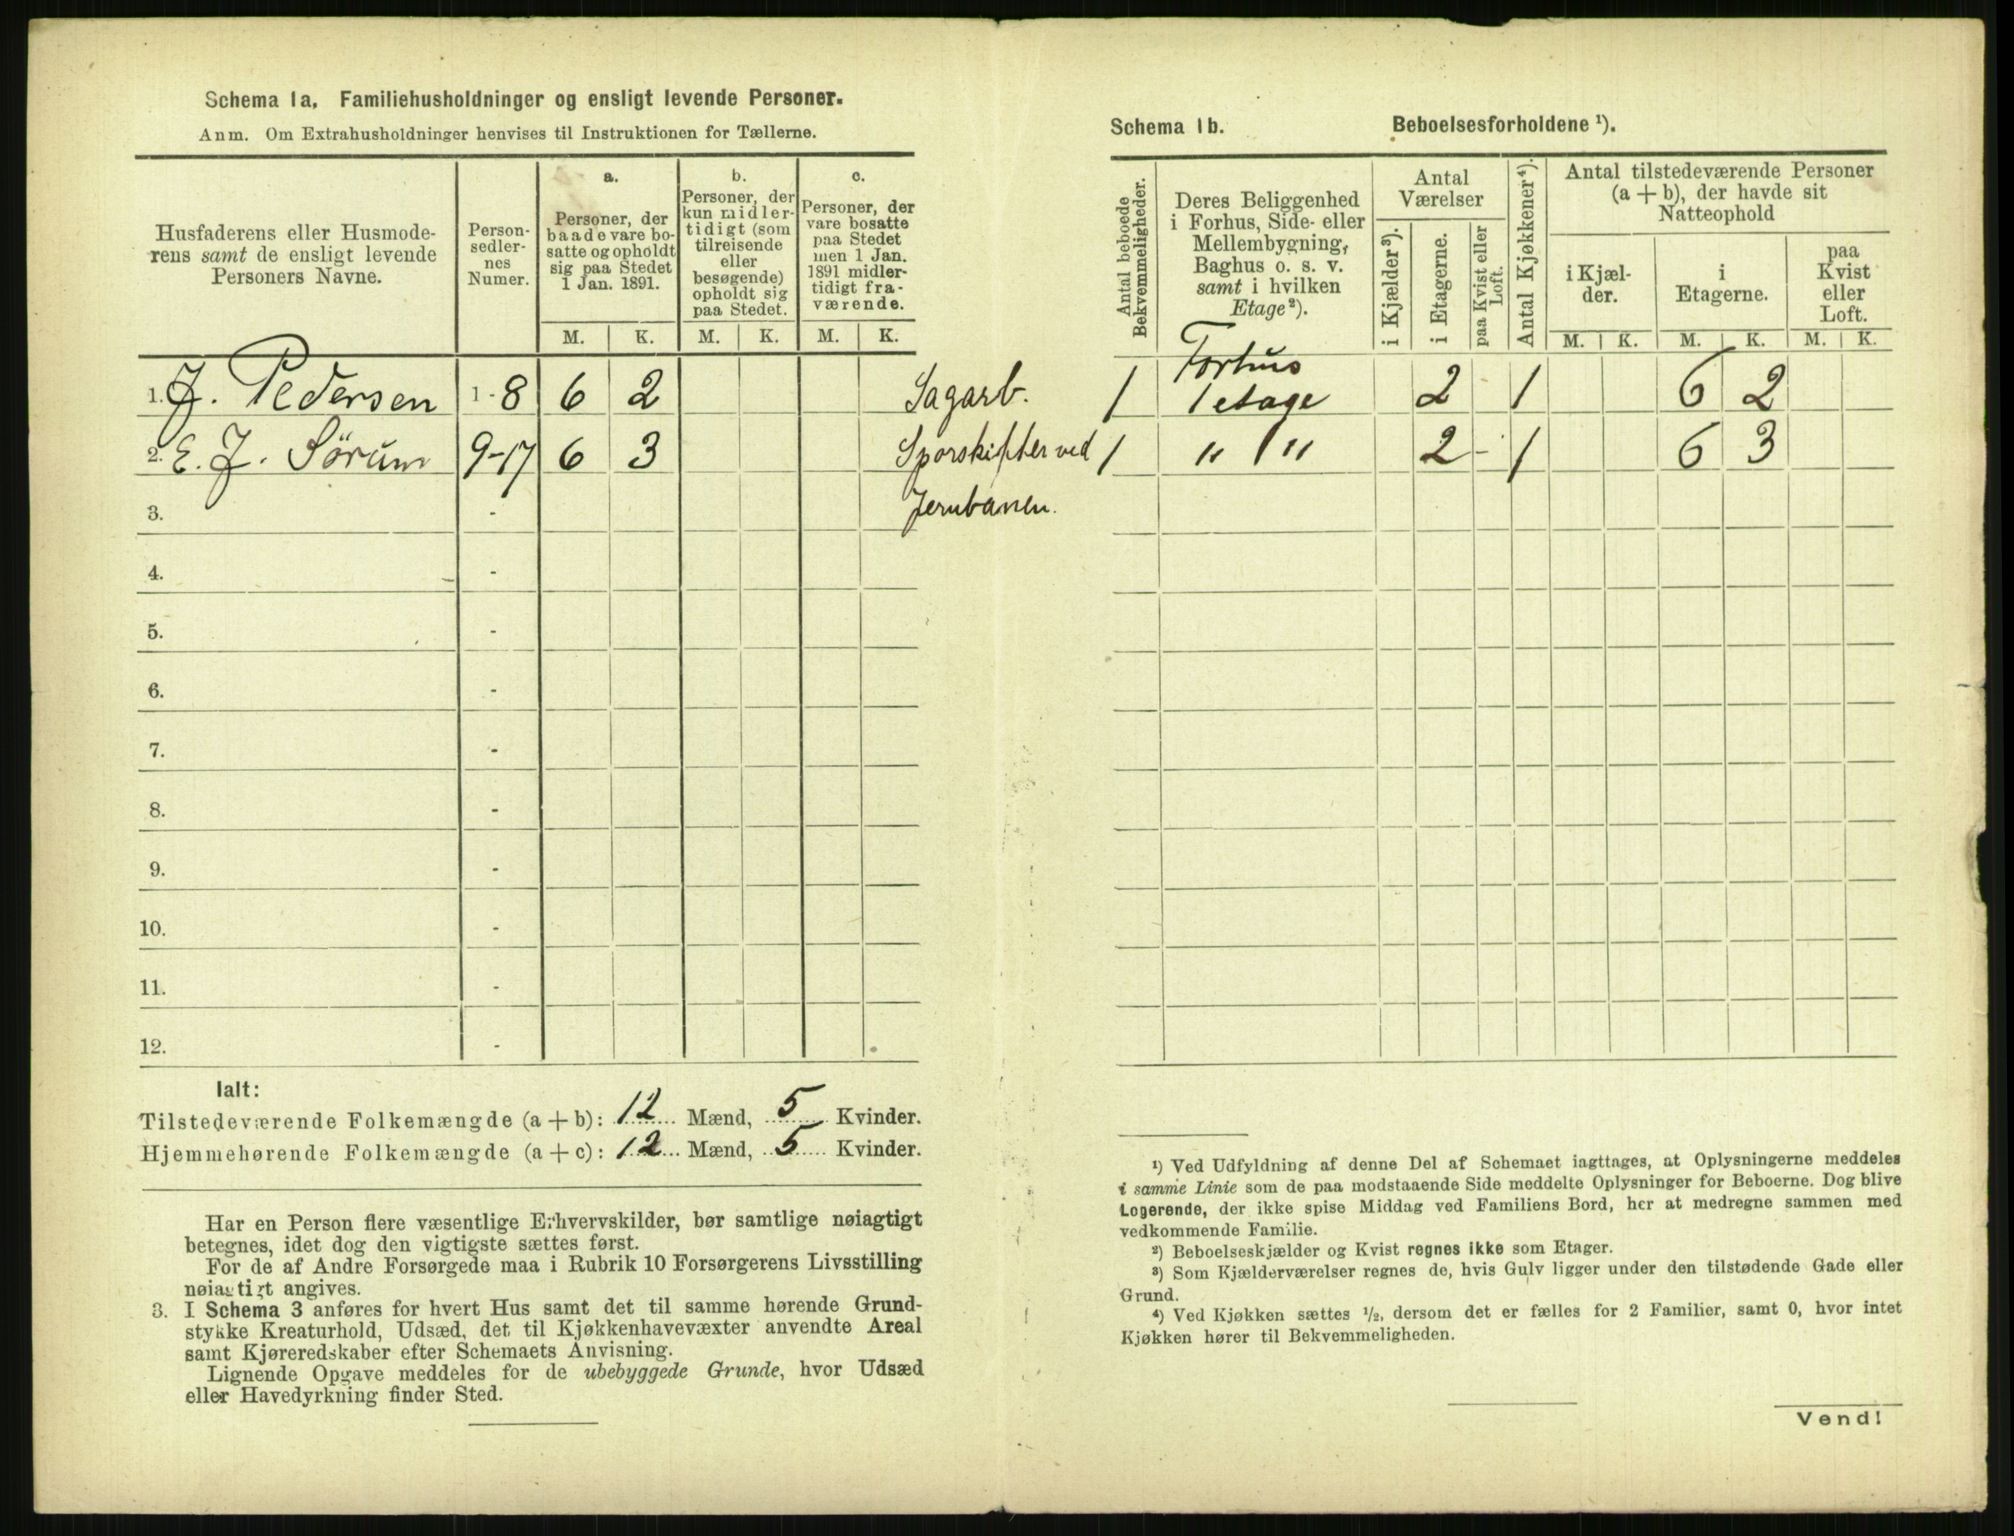 Schema 1a. Familiehusholdninger og ensligt levende Personer.
Anm. Om Extrahusholdninger henvises til Instruktionen for Tællerne.
Husfaderens eller Husmode-
rens samt de ensligt levende
Personers Navne.
Person-
sedler-
nes
Numer.
a.
Personer, der
baade vare bo-
satte og opholdt
sig paa Stedet
1 Jan. 1891.
b.
Personer, der
kun midler-
tidigt (som
tilreisende
eller
besøgende)
opholdt sig
paa Stedet.
c.
Personer, der
vare bosatte
paa Stedet
men 1 Jan.
1891 midler-
tidigt fra-
værende.
M. K. M. K. M. K.
1. J. Pedersen 1-8 6 2 Sagarb.
2. E. J. Sörum 9-17 6 3 Sporskifter ved
3. - Jernbanen.
4. -
5. -
6. -
7. -
8. -
9. -
10. -
11. -
12. -
Ialt:
Tilstedeværende Folkemængde (a + b): 12 Mænd, 5 Kvinder.
Hjemmehørende Folkemængde (a + c): 12 Mænd, 5 Kvinder.
Har en Person flere væsentlige Erhvervskilder, bør samtlige nøiagtigt
betegnes, idet dog den vigtigste sættes først.
For de af Andre Forsørgede maa i Rubrik 10 Forsørgerens Livsstilling
nøiagtigt angives.
3. I Schema 3 anføres for hvert Hus samt det til samme hørende Grund-
stykke Kreaturhold, Udsæd, det til Kjøkkenhavevæxter anvendte Areal
samt Kjøreredskaber efter Schemaets Anvisning.
Lignende Opgave meddeles for de ubebyggede Grunde, hvor Udsæd
eller Havedyrkning finder Sted.
Schema 1b. Beboelsesforholdene ¹).
Antal beboede
Bekvemmeligheder.
Deres Beliggenhed
i Forhus, Side- eller
Mellembygning,
Baghus o. s. v.
samt i hvilken
Etage²).
Antal
Værelser
i Kjælder³).
i Etagerne.
paa Kvist eller
Loft.
Antal Kjøkkener⁴).
Antal tilstedeværende Personer
(a + b), der havde sit
Natteophold
i Kjæl-
der.
i
Etagerne.
paa
Kvist
eller
Loft.
M. K. M. K. M. K.
Forhus
1 1 etage 2 - 1 6 2
1 " 1 " 2 - 1 6 3
¹) Ved Udfyldning af denne Del af Schemaet iagttages, at Oplysningerne meddeles
i samme Linie som de paa modstaaende Side meddelte Oplysninger for Beboerne. Dog blive
Logerende, der ikke spise Middag ved Familiens Bord, her at medregne sammen med
vedkommende Familie.
²) Beboelseskjælder og Kvist regnes ikke som Etager.
³) Som Kjælderværelser regnes de, hvis Gulv ligger under den tilstødende Gade eller
Grund.
⁴) Ved Kjøkken sættes ½, dersom det er fælles for 2 Familier, samt 0, hvor intet
Kjøkken hører til Bekvemmeligheden.
Vend!